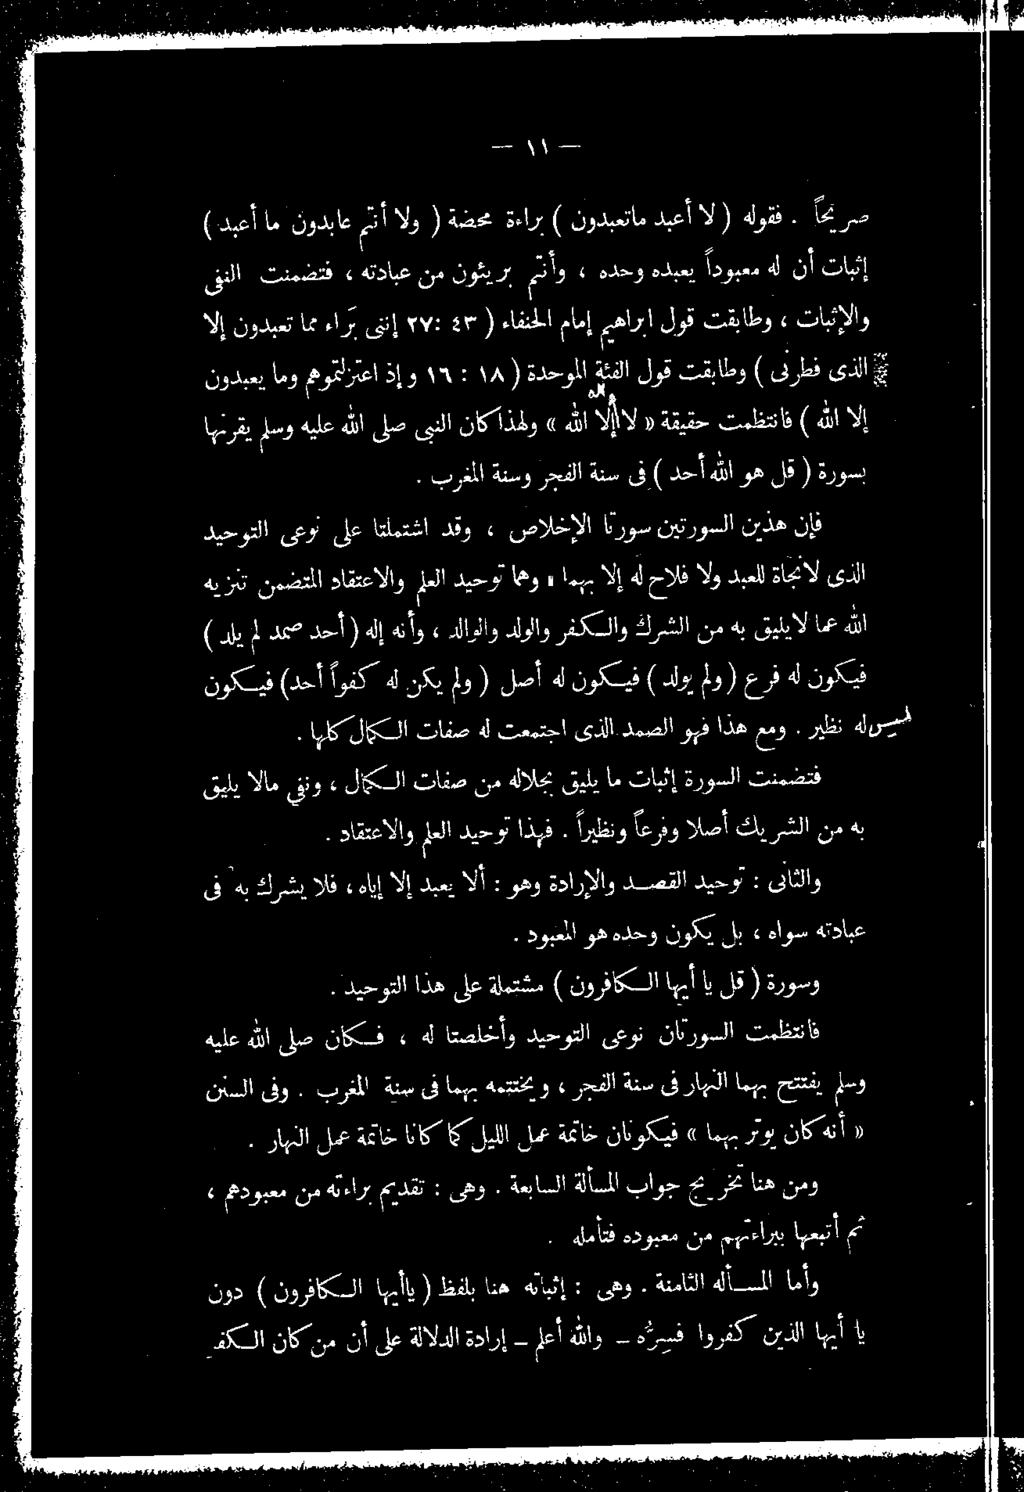 — ١١ —
صريحاً . فقوله ( لا أعبد ماتعبدون ) براءة محضة ( ولا أنتم عابدون ما أعبد )
إثبات أن له معبوداً يعبده وحده ، وأنتم بريئون من عبادته ، فتضمنت النفى
والإثبات ، وطابقت قول إمام الحنفاء ( ٤٣ : ٢٧ إننى بَرَاء مما تعبدون إلا
الذى فطرنى ) وطابقت قول الفئة الموحدة ( ١٨ : ١٦ وإذ اعتزلتموهم وما يعبدون
إلا الله ) فانتظمت حقيقة « لا إله إلا الله » ولهذا كان النبى صلى الله عليه وسلم يقرنها
بسورة ( قل هو الله أحد ) فى سنة الفجر وسنة المغرب .
فإن هذين السورتين سورتا الإخلاص ، وقد اشتملتا على نوعى التوحيد
الذى لانجاة للعبد ولا فلاح له إلا بهما ، وهما توحيد العلم والاعتقاد المتضمن تنزيه
الله عما لايليق به من الشرك والكفر والولد والوالد ، وأنه إله ( أحد صمد لم يلد )
فيكون له فرع ( ولم يولد ) فيكون له أصل ( ولم يكن له كفواً أحد ) فيكون
ليس له نظير . ومع هذا فهو الصمد الذى اجتمعت له صفات الكمال كلها .
فتضمنت السورة إثبات ما يليق بجلاله من صفات الكمال ، ونفى مالا يليق
به من الشريك أصلا وفرعاً ونظيراً . فهذا توحيد العلم والاعتقاد .
والثانى : توحيد القصد والإرادة وهو : ألا يعبد إلا إياه ، فلا يشرك به فى
عبادته سواه ، بل يكون وحده هو المعبود .
وسورة ( قل يا أيها الكافرون ) مشتملة على هذا التوحيد .
فانتظمت السورتان نوعى التوحيد وأخلصتا له ، فكان صلى الله عليه
وسلم يفتتح بهما النهار فى سنة الفجر ، ويختتمه بهما فى سنة المغرب . وفى السنن
« أنه كان يوتر بهما » فيكونان خاتمة عمل الليل كما كانا خاتمة عمل النهار .
ومن هنا تخريج جواب المسألة السابعة . وهى : تقديم براءته من معبودهم ،
ثم أتبعها ببراءتهم من معبوده فتأمله .
وأما المسأله الثامنة . وهى : إثباته هنا بلفظ ( ياأيها الكافرون ) دون
يا أيها الذين كفروا فسِرُّه – والله أعلم – إرادة الدلالة على أن من كان الكفر